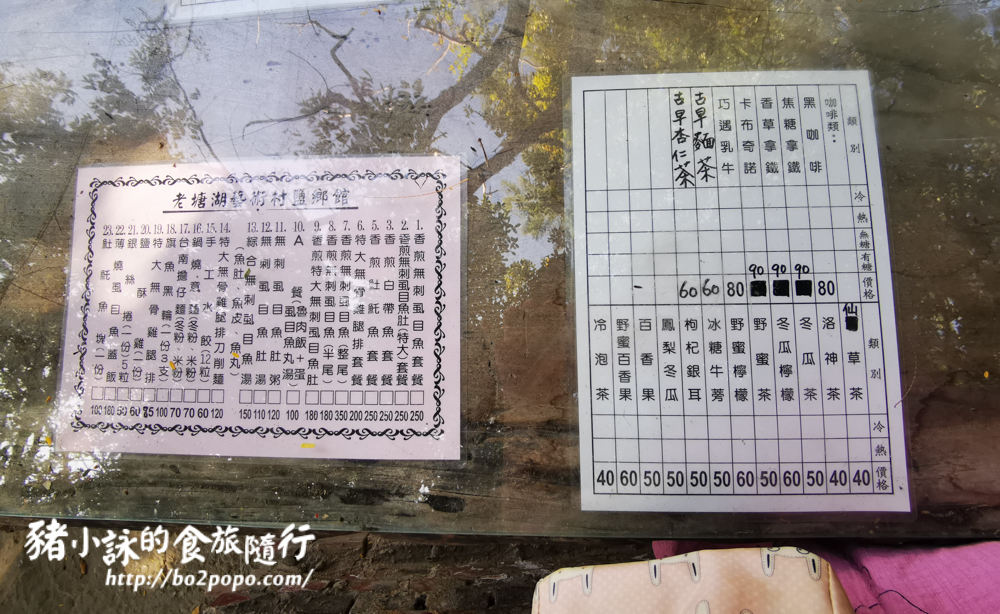 老塘湖藝術村鹽鄉館
1. 香煎無刺虱目魚套餐 250
2. 香煎無刺虱目魚肚(特大)套餐 250
3. 香煎白帶魚套餐 250
5. 香煎魠魚套餐 250
6. 特大無骨雞腿排套餐 200
7. 香煎無刺虱目魚(整尾) 350
8. 香煎無刺虱目魚(半尾) 180
9. 香煎特大無刺虱目魚肚 180
10. A餐(魯肉飯+蛋 虱目魚丸湯) 100
11. 無刺虱目魚粥 120
12. 無刺虱目魚肚湯 110
13. 綜合無刺虱目魚湯(魚肚、魚皮、魚丸) 150
14. 特大無骨雞腿排刀削麵 120
15. 手工水餃(12粒) 60
16. 鍋燒意麵(冬粉、米粉) 70
17. 台南擔仔麵(冬粉、米粉) 70
18. 旗魚黑輪(一份3支) 100
19. 特大無骨雞腿排
20. 鹽酥雞(一份) 60
21. 銀絲捲(一份)5粒 50
22. 薄燒虱目魚蓋飯 180
23. 魠魚塊(一份) 100
類別
冷
熱
無糖
有糖
價格
咖啡類:
黑咖啡 80
焦糖拿鐵 90
香草拿鐵 90
卡布奇諾 90
巧遇乳牛 80
古早麵茶 60
古早杏仁茶 60
類別
冷
熱
價格
仙草茶 40
洛神茶 40
冬瓜茶 50
冬瓜檸檬 60
野蜜茶 50
野蜜檸檬 60
冰糖牛蒡 50
枸杞銀耳 50
鳳梨冬瓜 50
百香果 50
野蜜百香果 60
冷泡茶 40
豬小詠的食旅隨行
http://bo2popo.com/